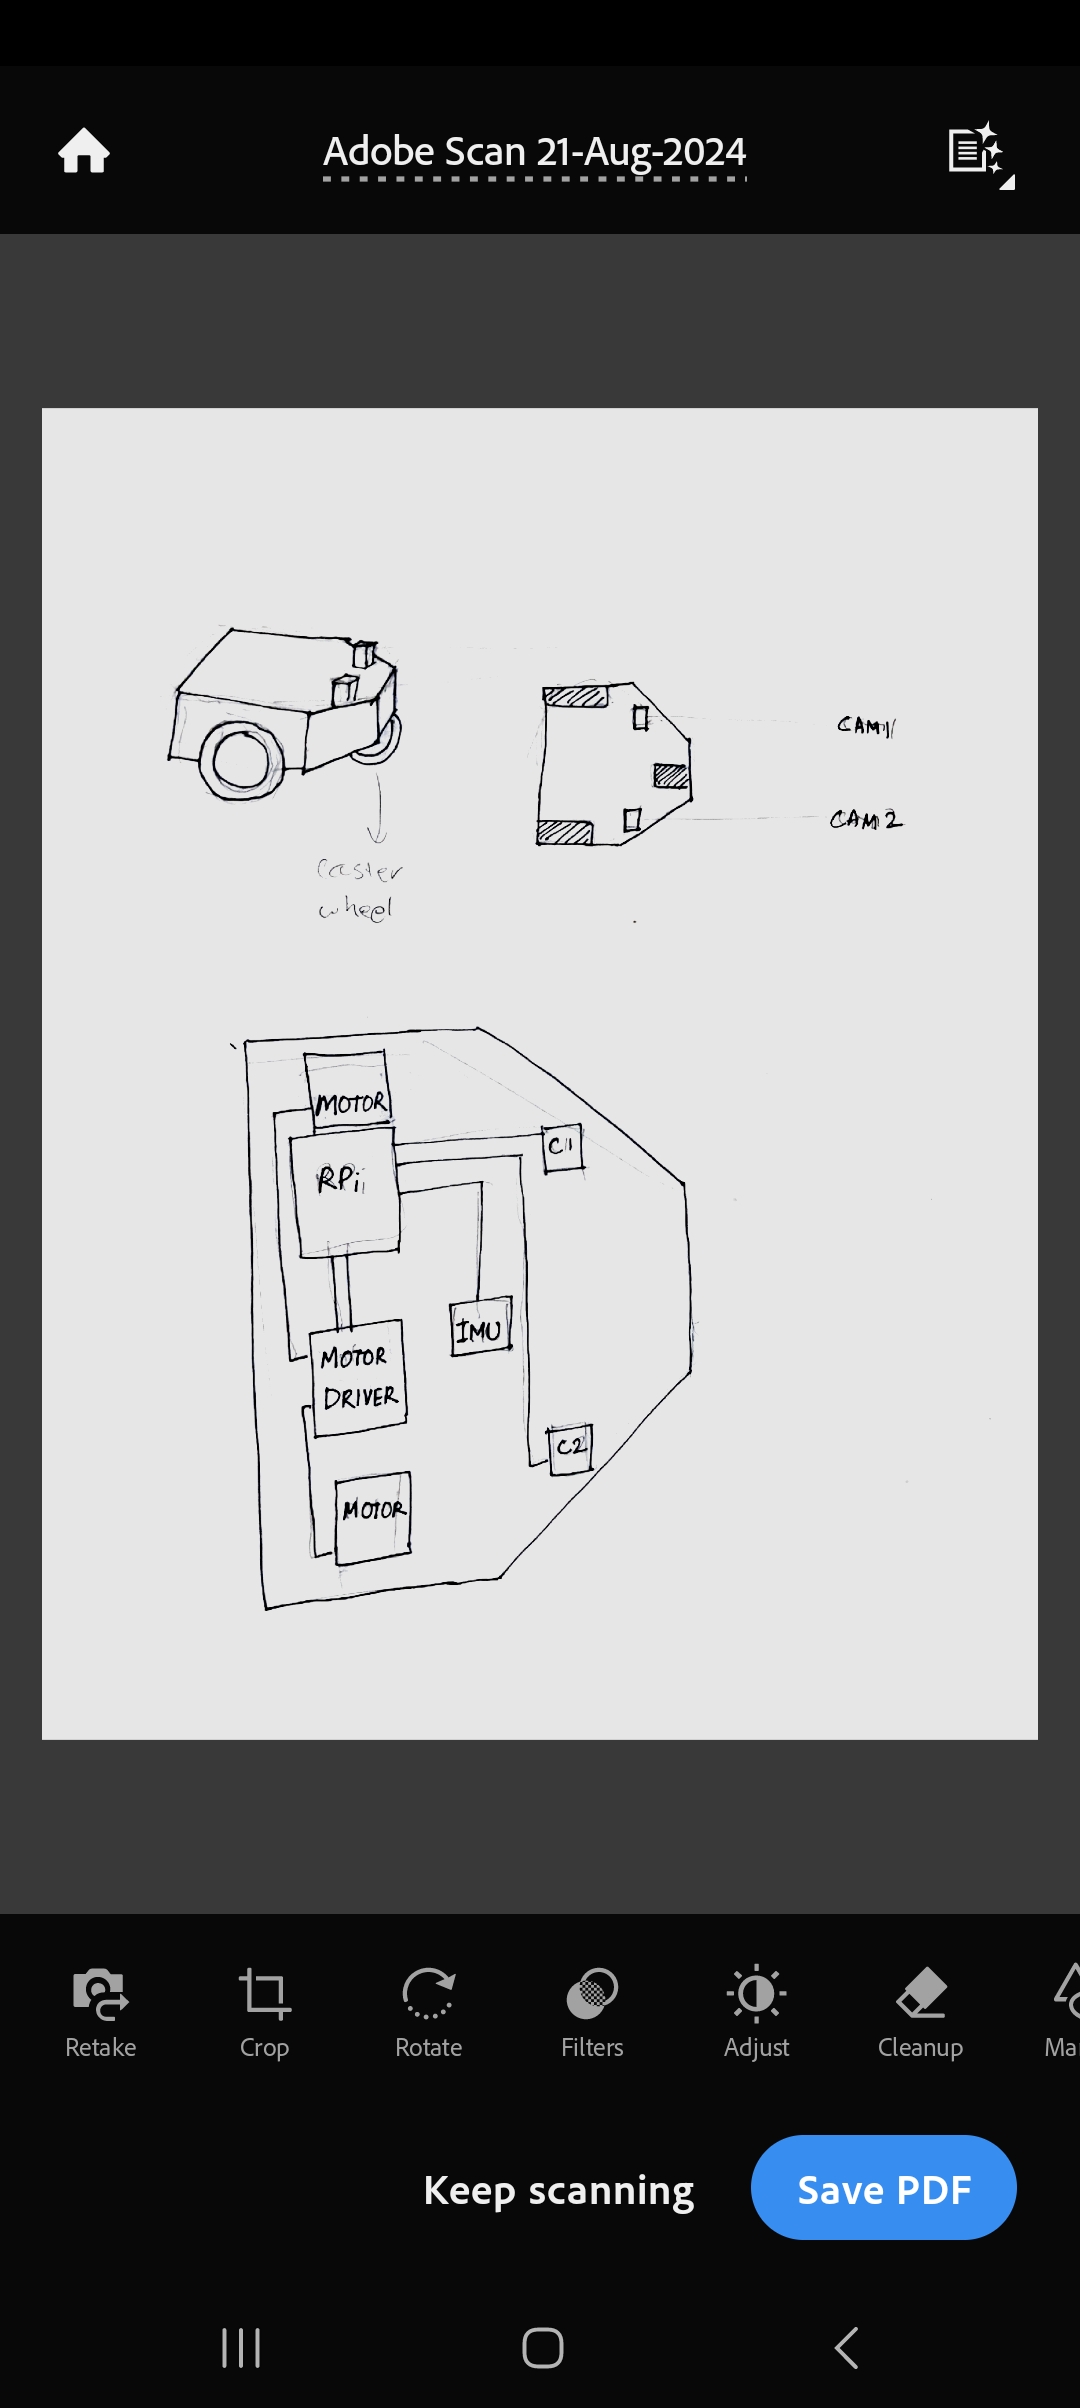 Adobe Scan 21-Aug-2024
CAM1
caster
wheel
CAM2
MOTOR
C1
RPi
IMU
MOTOR
DRIVER
C2
MOTOR
Retake
Crop
Rotate
Filters
Adjust
Cleanup
Keep scanning
Save PDF